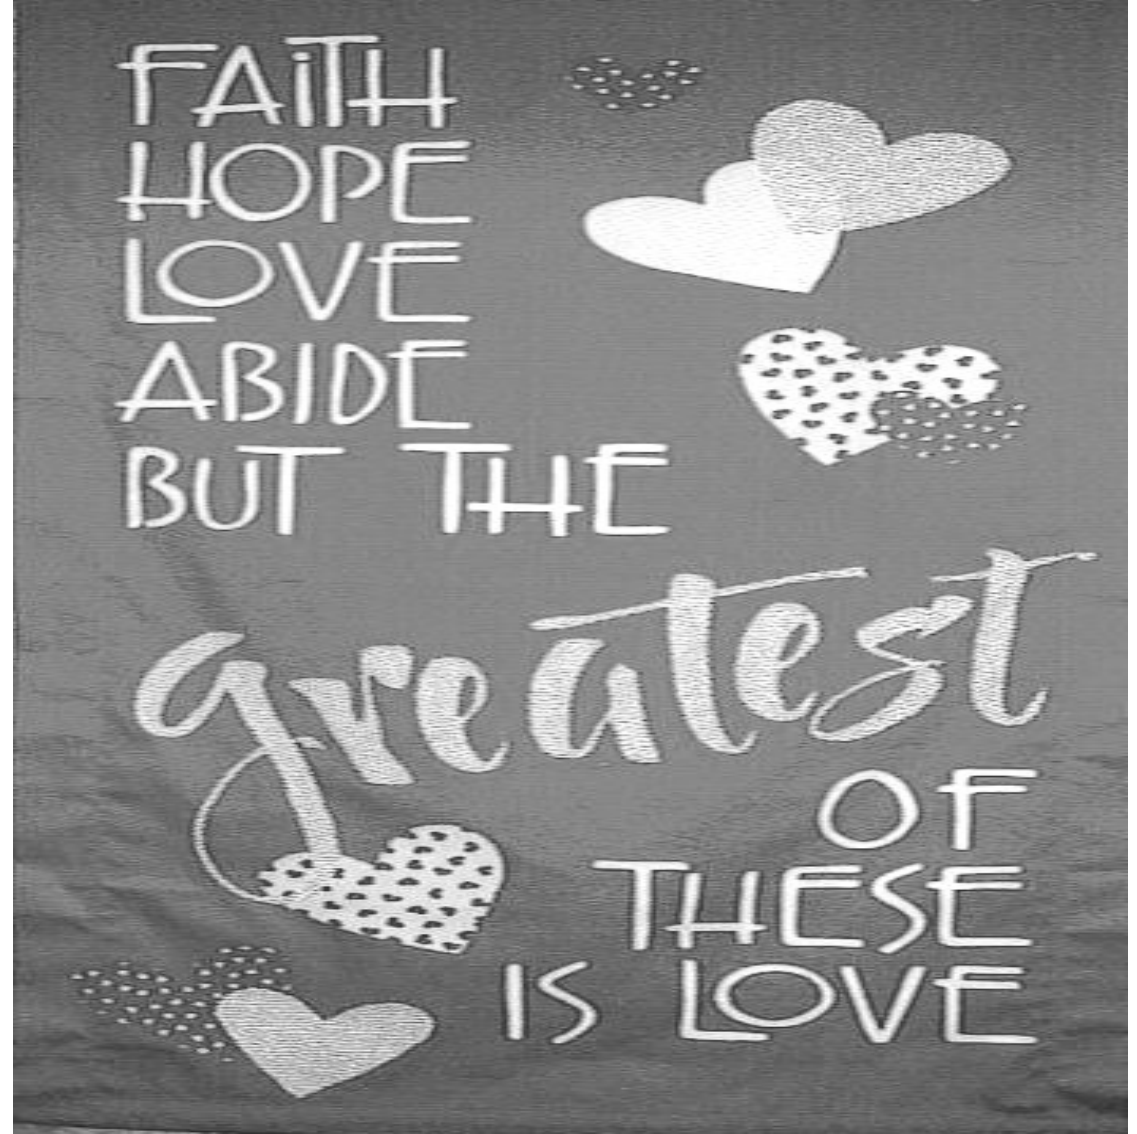 FAiTH
HOPE
LOVE
ABIDE
BUT THE
greatest
OF
THESE
IS LOVE